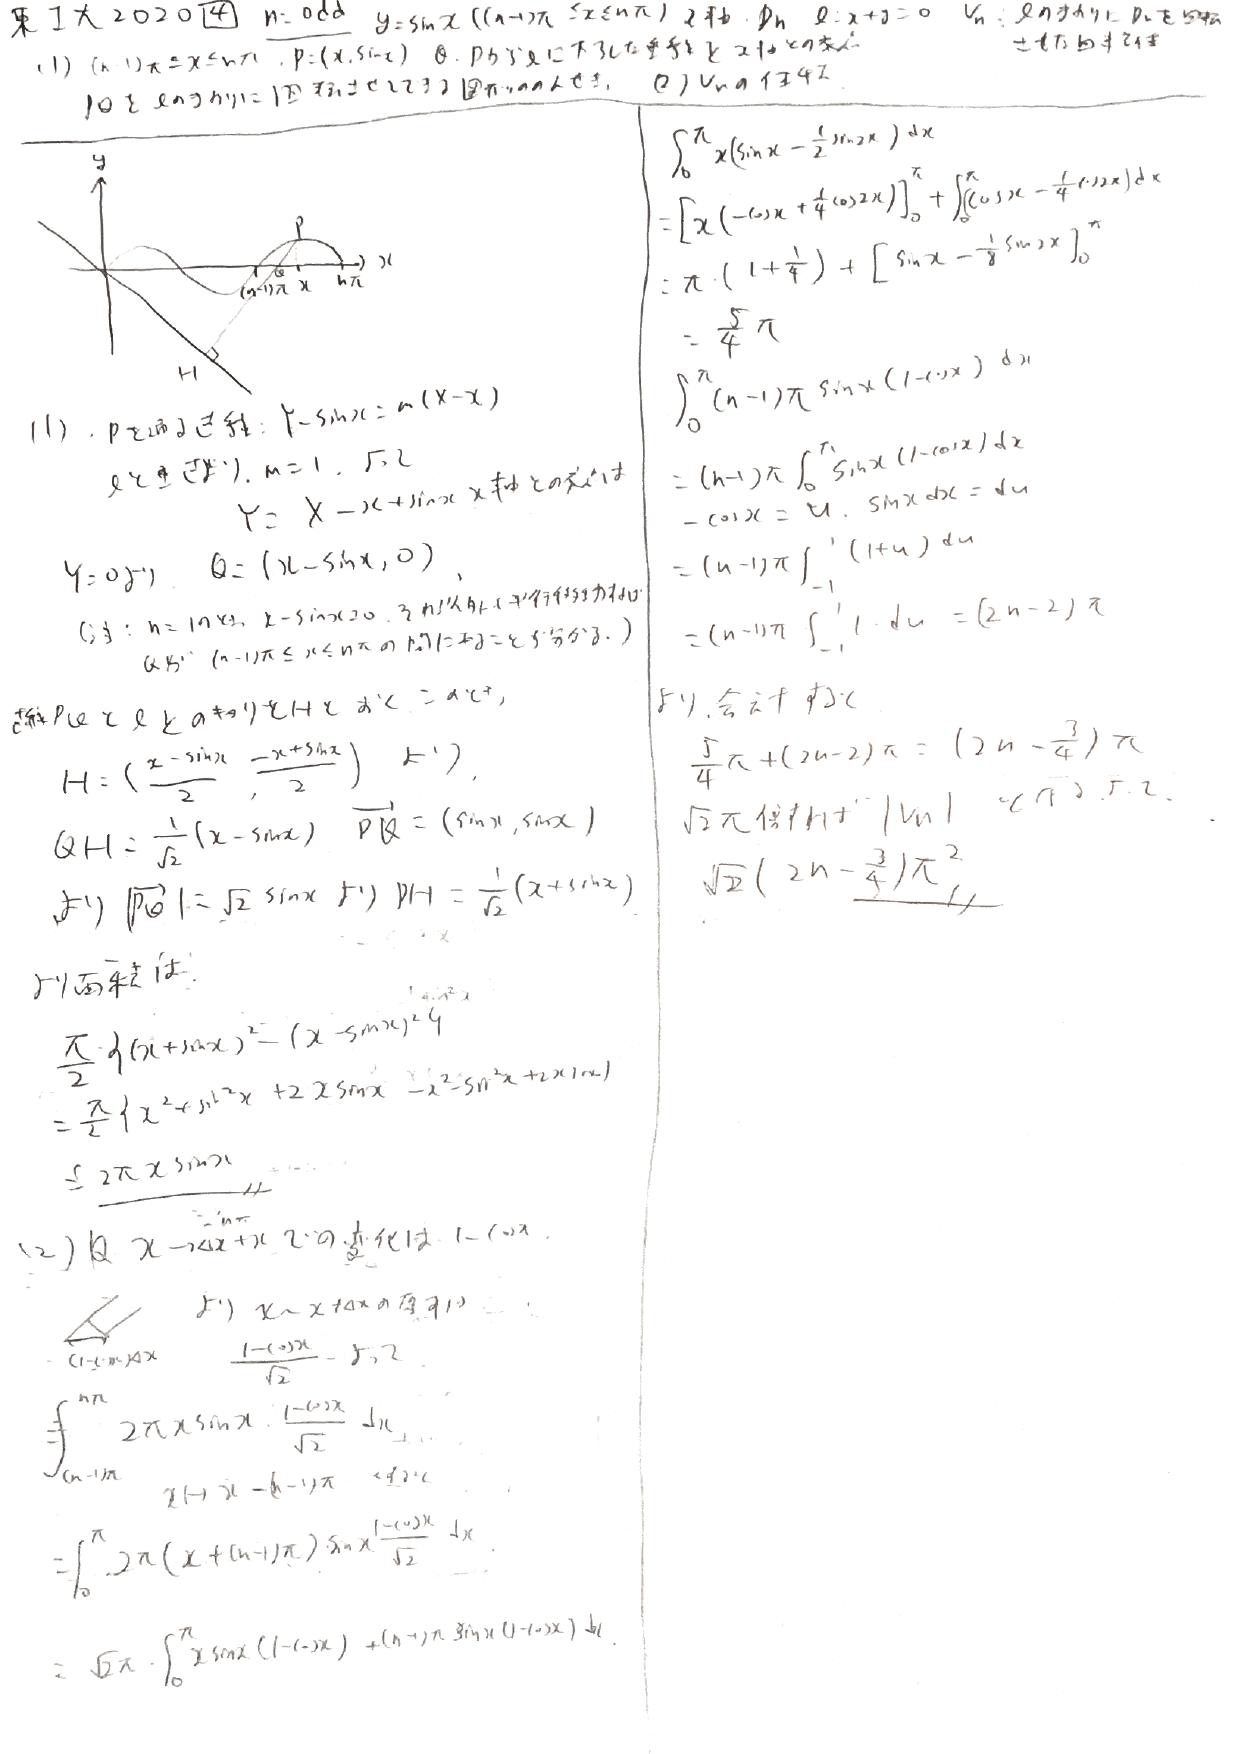 東工大2020 4 n=odd y=sinx ((n-1)π≤x≤nπ) と x軸. Dn l: x+y=0 Vn: lのまわりに Dnを回転
させた回転体
(1) (n-1)π≤x≤nπ, P=(x, sinx) Q. Pからlに下ろした垂線とx軸との交点
PQをlのまわりに1回転させてできる図形の (2) Vnの体積
y
P
x
Q
(n-1)π x nπ
H
(1). Pを通る直線: Y-sinx=m(X-x)
lと直交より, m=1. よって
Y=X-x+sinx x軸との交点は
Y=0より Q=(x-sinx, 0)
(注: n=1のとき x-sinx≥0
Qが (n-1)π≤x≤nπの間にあることも分かる.)
直線PQとlとの交わりをHとおくことにすると,
H=(x-sinx/2, -x+sinx/2) より,
QH=1/√2(x-sinx) PQ=(sinx, sinx)
より |PQ|=√2 sinx より PH=1/√2(x+sinx)
より面積は
π/2{(x+sinx)²-(x-sinx)²}
=π/2{x²+sin²x+2xsinx-x²-sin²x+2xsinx}
=2πxsinx
(2) Q x→Δx+x での変化は 1-cosx.
より x~x+Δxの厚みは
(1-cosx)Δx
1-cosx/√2 よって
∫(n-1)π nπ 2πxsinx・1-cosx/√2 dx
x↦x-(n-1)π とすると
=∫0 π 2π(x+(n-1)π)sinx 1-cosx/√2 dx
=√2π・∫0 π xsinx(1-cosx)+(n-1)π sinx(1-cosx)dx
∫0 π x(sinx-1/2 sin2x)dx
=[x(-cosx+1/4 cos2x)]0 π+∫0 π(cosx-1/4 cos2x)dx
=π・(1+1/4)+[sinx-1/8 sin2x]0 π
=5/4 π
∫0 π (n-1)π sinx(1-cosx) dx
=(n-1)π∫0 π sinx(1-cosx)dx
-cosx=u. sinxdx=du
=(n-1)π∫-1 1 (1+u)du
=(n-1)π∫-1 1 1・du=(2n-2)π
より, 合計すると
5/4 π+(2n-2)π=(2n-3/4)π
√2π倍すれば |Vn| となる. よって.
√2(2n-3/4)π²